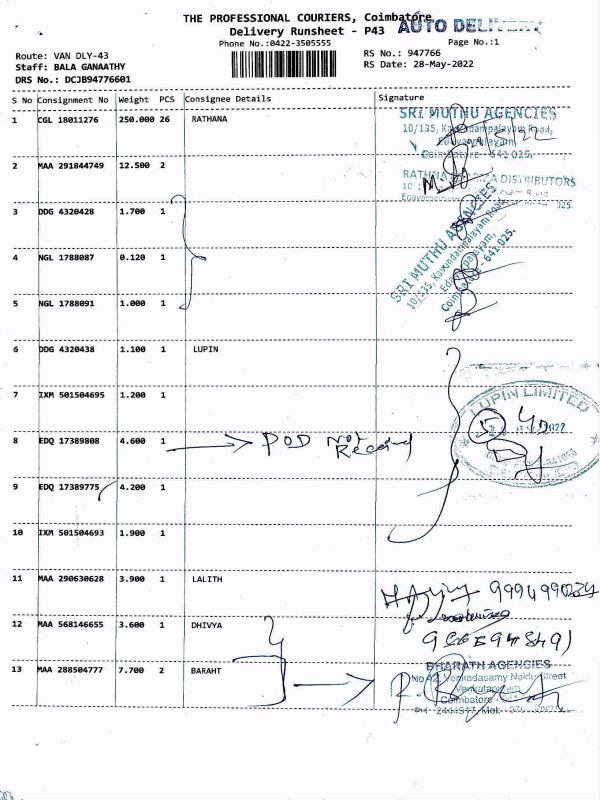 THE PROFESSIONAL COURIERS, Coimbatore.
AUTO DELIVERY
Delivery Runsheet - P43
Phone No.:0422-3505555
Page No.:1
Route: VAN DLY-43
RS No.: 947766
Staff: BALA GANAATHY
RS Date: 28-May-2022
DRS No.: DCJB94776601
S No Consignment No Weight PCS Consignee Details Signature
1 CGL 18011276 250.000 26 RATHANA
SRI MUTHU AGENCIES
10/135, Kavundampalayam Road,
Edayarpalayam,
Coimbatore - 641 025.
2 MAA 291844749 12.500 2
DISTRIBUTORS
3 DDG 4320428 1.700 1
SRI MUTHU AGENCIES
10/135, Kavundampalayam Road,
Edayarpalayam,
Coimbatore - 641 025.
4 NGL 1788087 0.120 1
5 NGL 1788091 1.000 1
6 DDG 4320438 1.100 1 LUPIN
7 IXM 501504695 1.200 1
LUPIN LIMITED
8 EDQ 17389808 4.600 1 POD Not
Received
9 EDQ 17389775 4.200 1
10 IXM 501504693 1.900 1
11 MAA 290630628 3.900 1 LALITH
12 MAA 568146655 3.600 1 DHIVYA
13 MAA 288504777 7.700 2 BARAHT
BHARATH AGENCIES
No.42, Venkadasamy Naidu Street
Venkatapuram
Coimbatore